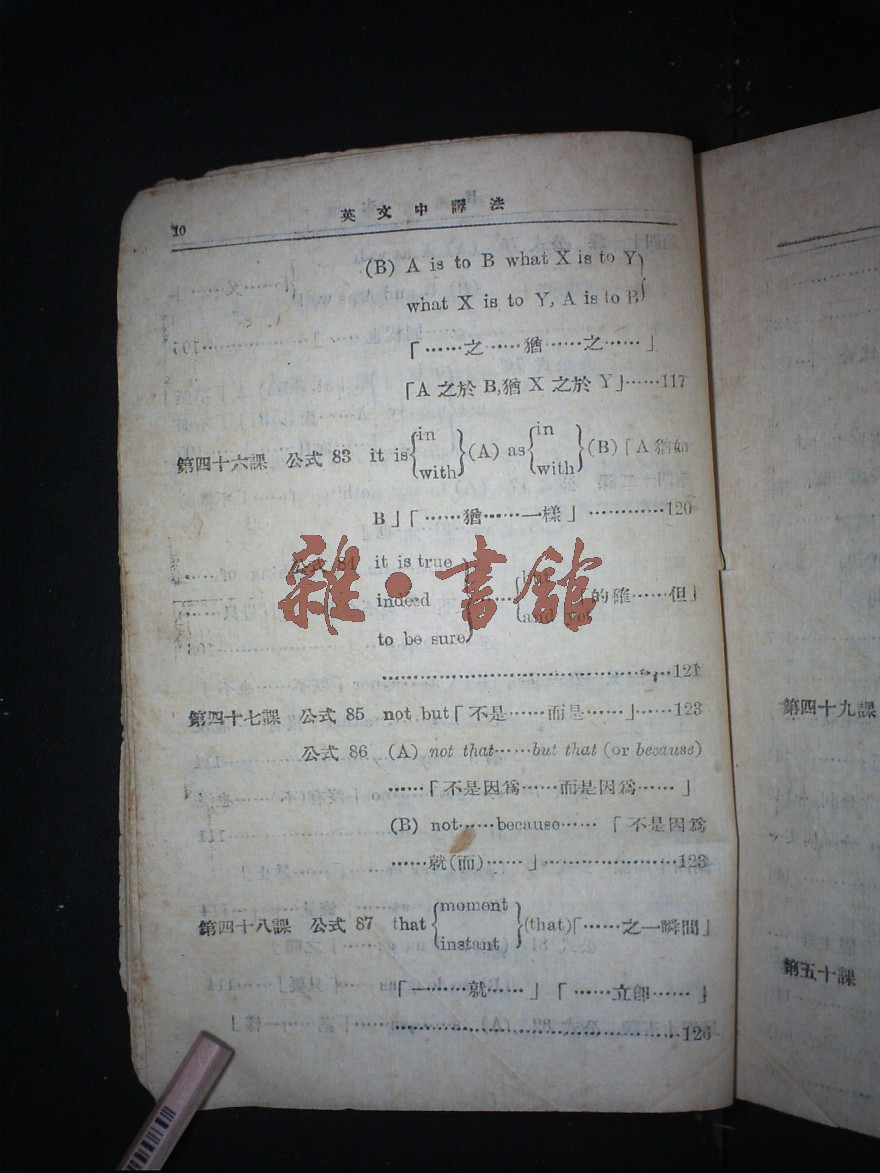 10
英文中譯法
(B) A is to B what X is to Y
what X is to Y, A is to B
「……之……猶……之……」
「A 之於 B,猶 X 之於 Y」……117
第四十六課 公式 83 it is {in with} (A) as {in with} (B)「A 猶如
B」「……猶……一樣」…………120
公式 84 it is true
indeed …… {but and yet 「的確……但」
to be sure
……………………………………121
第四十七課 公式 85 not but「不是……而是……」……123
公式 86 (A) not that……but that (or because)
……「不是因爲……而是因爲……」
(B) not……because……「不是因爲
……就(而)……」……………………123
第四十八課 公式 87 that {moment instant} (that)「……之一瞬間」
「一……就……」「……立即……」
……………………………………126
第四十九課
第五十課
雜·書舘